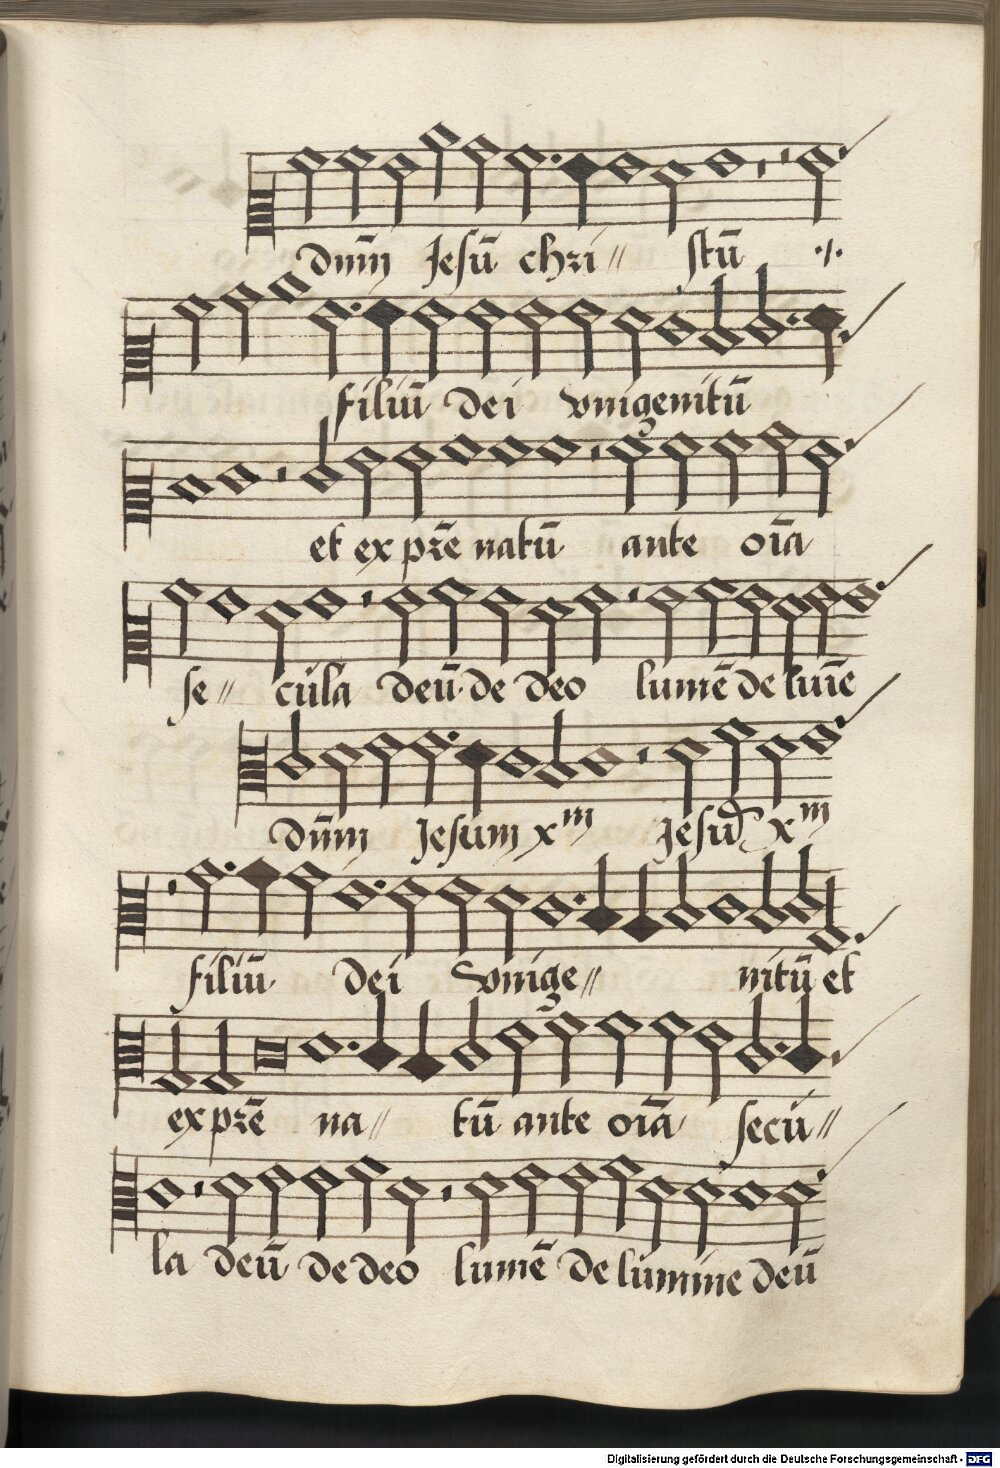 dnm̄ Jesū chri〃 stū ·/·
filiū dei vnigenitū
et ex pr̄e natū ante oīa
se〃 cula deū de deo lumē de luīe
dn̄m Jesum xᵐ Jesū xᵐ
filiū dei vnige〃 nitū et
ex pr̄e na〃 tū ante oīa secu〃
la deū de deo lumē de lumine deū
Digitalisierung gefördert durch die Deutsche Forschungsgemeinschaft - DFG